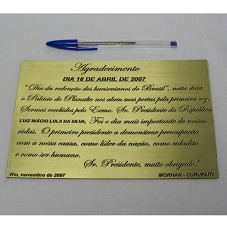 Agradecimento
DIA 18 DE ABRIL DE 2007
"Dia da redenção dos hansenianos do Brasil", nesta data
o Palácio do Planalto nos abriu suas portas pela primeira vez.
Sermos recebidos pelo Exmo. Sr. Presidente da República
LUIZ INÁCIO LULA DA SILVA, Foi o dia mais importante de nossas
vidas. O primeiro presidente a demonstrar preocupação
com a nossa causa, como líder da nação, como cidadão
e como ser humano.
Sr. Presidente, muito obrigado!
Rio, novembro de 2007 MORHAN - CURUPAITI